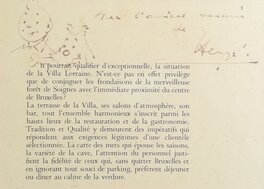 Hergé
Il pourrait qualifier d'exceptionnelle, la situation
de la Villa Lorraine. N'est-ce pas en effet privilège
que de conjuguer les frondaisons de la merveilleuse
forêt de Soignes avec l'immédiate proximité du centre
de Bruxelles?
La terrasse de la Villa, ses salons d'atmosphère, son
bar, tout l'ensemble harmonieux s'inscrit parmi les
hauts lieux de la restauration et de la gastronomie.
Tradition et Qualité y demeurent des impératifs qui
répondent aux exigences légitimes d'une clientèle
sélectionnée. La carte des mets qui épouse les saisons,
la variété de la cave, l'attention du personnel justi-
fient la fidélité de ceux qui, sans quitter Bruxelles et
en ignorant tout souci de parking, préfèrent déjeuner
ou dîner au calme de la verdure.